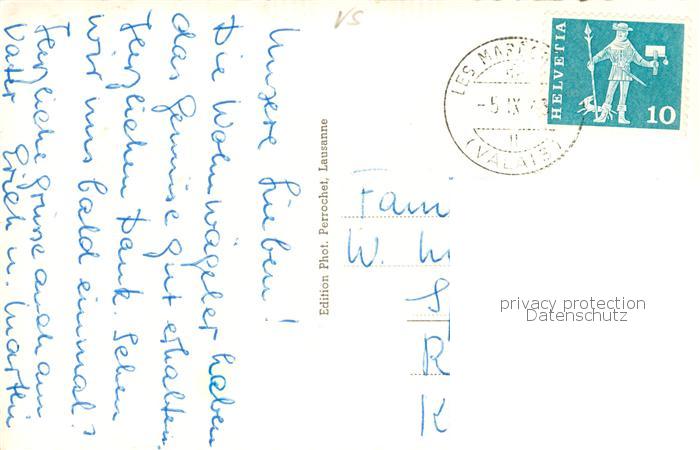 VS
Unsere Lieben!
Die Wohnwägeler haben
das Gemüse gut erhalten.
Herzlichen Dank. Sehen
wir uns bald einmal?
Herzliche Grüsse auch an
Vater Erich u. Marten
Edition Phot. Perrochet, Lausanne
LES MAR
-5.IX
(VALAIS)
HELVETIA
10
Fami
W.
S
R
K
privacy protection
Datenschutz